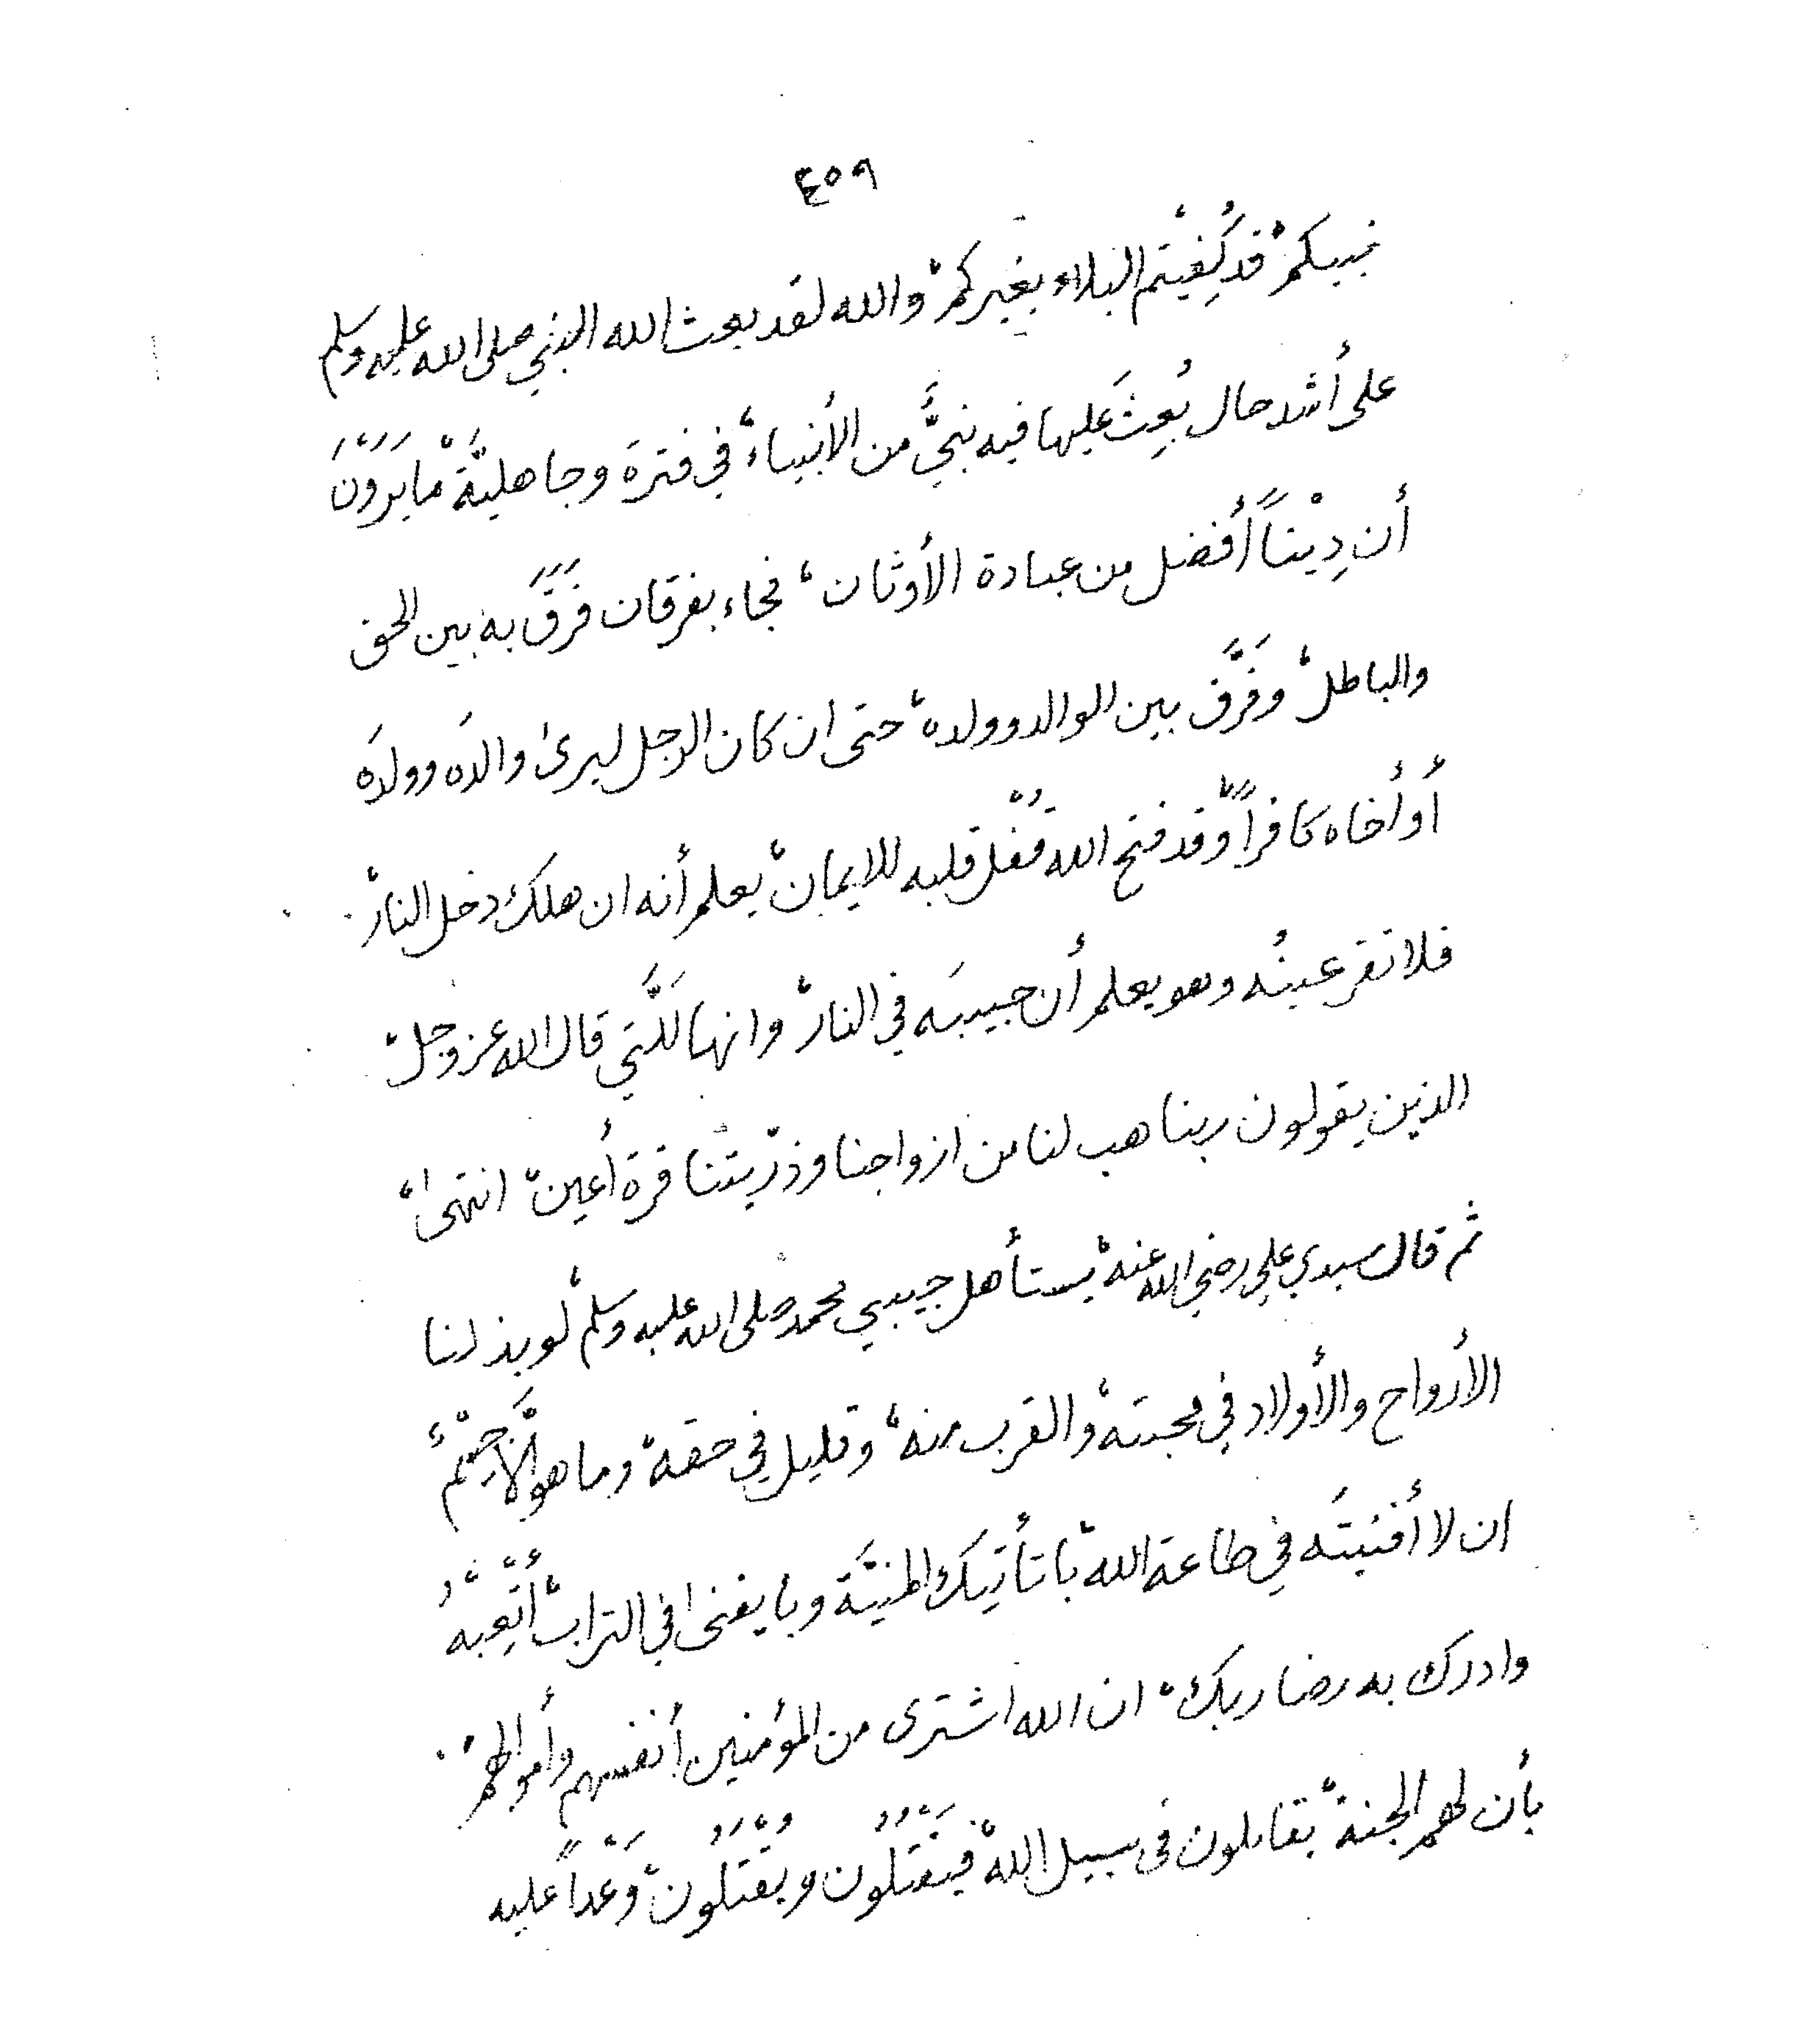 ٤٥٩
نبيكم، قد كُفِيْتم البلاء بغيركم، والله لقد بعث الله النبي صلى الله عليه وسلم
على أشد حال بُعِثَ عليها فيه نبيٌّ من الأنبياء، في فترة وجاهليّة، ما يَرَوْنَ
أن دِيْناً أفضل من عبادة الأوثان، فجاء بفرقان فَرَقَ به بين الحق
والباطل، وفَرَّق بين الوالد وولده، حتى ان كان الرجل ليرى والدَه وولدَه
أو أخاه كافراً، وقد فتح الله قُفْلَ قلبه للايمان، يعلم أنه ان هلك دخل النار،
فلا تقر عينُه وهو يعلم أن حبيبَه في النار، وانها لَلَّتي قال الله عز وجل،
الذين يقولون ربنا هب لنا من ازواجنا وذرّيتنا قرة أعين، انتهى،
ثم قال سيدي علي رضي الله عنه، يستأهل حبيبي محمد صلى الله عليه وسلم، لو بذلنا
الأرواح والأولاد في محبته، والقرب منه، وقليل في حقه، وما هو
ان لا أفنيتَه في طاعة الله، با تأتيك المنيَّة وبا يفنى في التراب، أَتْعِبْهُ
وادرك به رضا ربك، ان الله اشترى من المؤمنين أنفسهم وأموالهم،
بأن لهم الجنة، يقاتلون في سبيل الله، فيَقْتُلُون ويُقْتَلُون، وَعْداً عليه